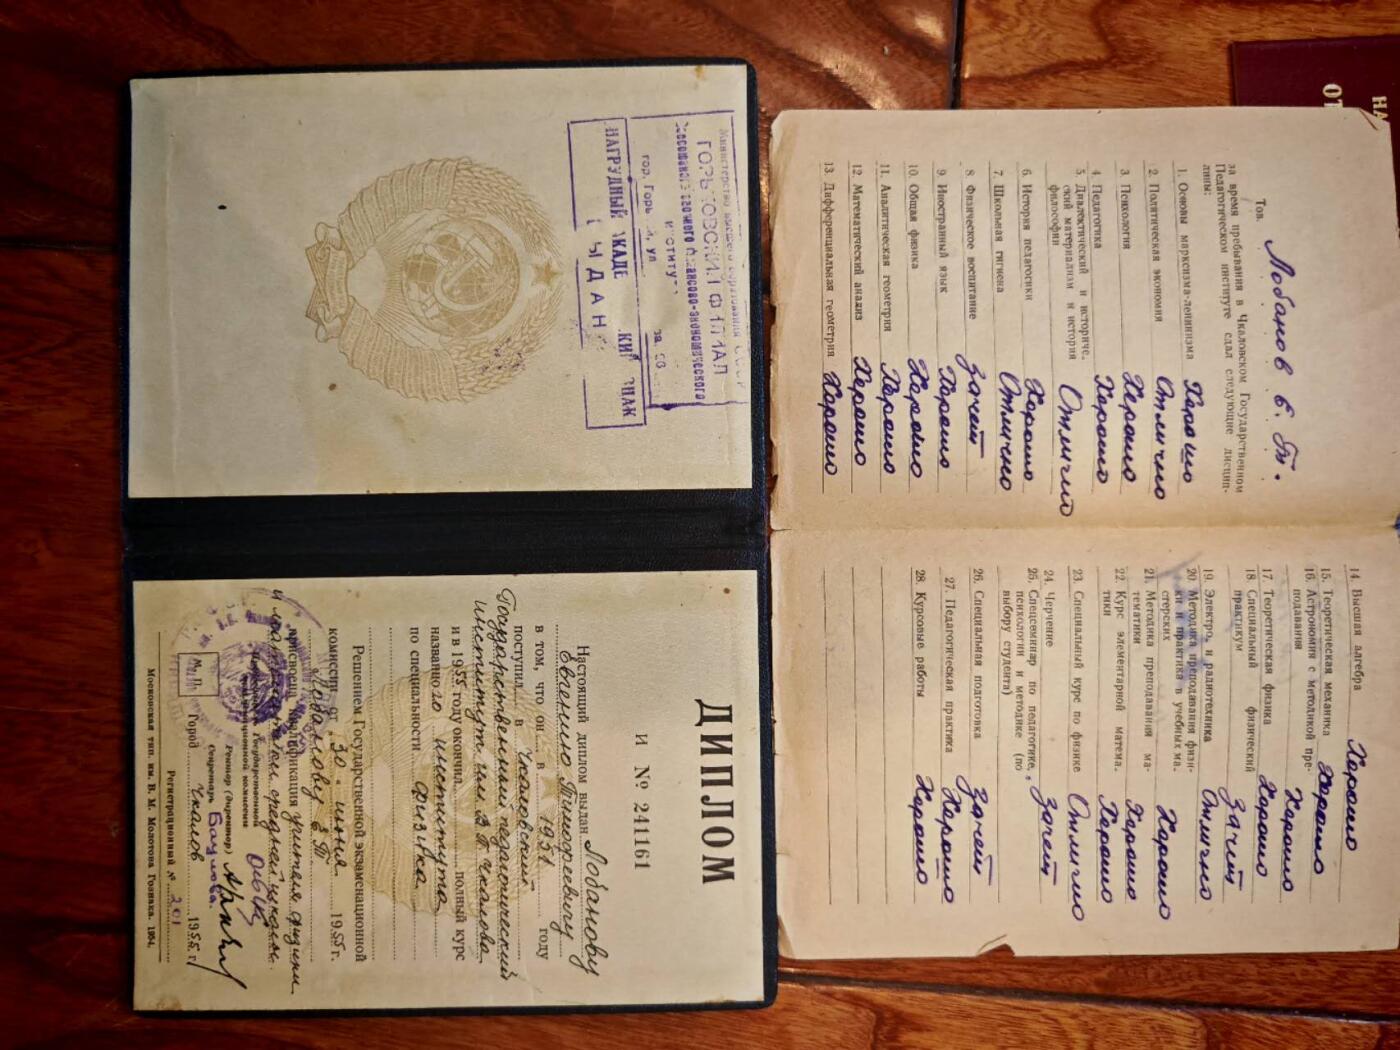 ГОРЬКОВСКИЙ ФИЛИАЛ
финансово-экономического
института
гор.
НАГРУДНЫЙ
ЗНАК
ВЫДАН
ДИПЛОМ
И № 241161
Настоящий диплом выдан Лобанову
Евгению Тимофеевичу
в том, что он в 1951 году
поступил в Чкаловский
Государственный педагогический
институт им. В. П. Чкалова
и в 1955 году окончил полный курс
названного института
по специальности физика
Решением Государственной экзаменационной
комиссии от 30 июня 1955 г.
Лобанову Е Т
присвоена квалификация учителя физики
средней школы.
М. П.
Ректор (директор)
Секретарь
Город Чкалов 1955 г.
Регистрационный № 201
Московская тип. им. В. М. Молотова Гознака. 1954.
Тов. Лобанов Е. Т.
за время пребывания в Чкаловском Государственном
Педагогическом институте сдал следующие дисцип-
лины:
1. Основы марксизма-ленинизма Хорошо
2. Политическая экономия Отлично
3. Психология Хорошо
4. Педагогика Хорошо
5. Диалектический и историче-
ский материализм и история
философии Отлично
6. История педагогики Хорошо
7. Школьная гигиена Отлично
8. Физическое воспитание Зачет
9. Иностранный язык Хорошо
10. Общая физика Хорошо
11. Аналитическая геометрия Хорошо
12. Математический анализ Хорошо
13. Дифференциальная геометрия Хорошо
14. Высшая алгебра Хорошо
15. Теоретическая механика Хорошо
16. Астрономия с методикой пре-
подавания Хорошо
17. Теоретическая физика Хорошо
18. Специальный физический
практикум Зачет
19. Электро- и радиотехника Отлично
20. Методика преподавания физи-
ки и практика в учебных ма-
стерских Хорошо
21. Методика преподавания ма-
тематики Хорошо
22. Курс элементарной матема-
тики Хорошо
23. Специальный курс по физике Отлично
24. Черчение Зачет
25. Спецсеминар по педагогике,
психологии и методике (по
выбору студента)
26. Специальная подготовка Зачет
27. Педагогическая практика Хорошо
28. Курсовые работы Хорошо